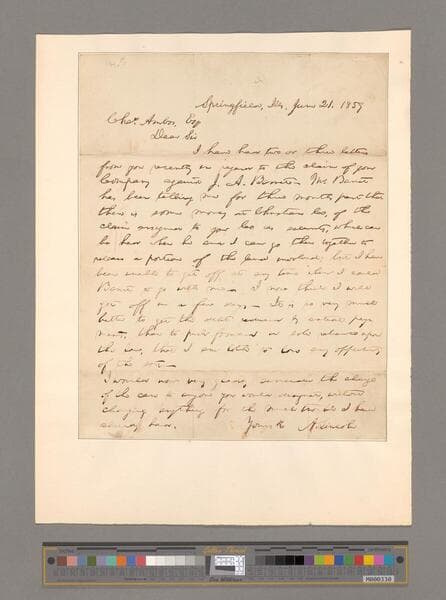 Springfield, Ills, June 21. 1859
Chas. Ambos, Esq
Dear Sir
I have had two or three letters
from you recently in regard to the claim of your
Company against J. A. Barrett. Mr. Barrett
has been telling me for three months past that
there is some money at Christian Co, of the
claim assigned to your Co as security, which can
be had when he and I can go there together to
release a portion of the land involved; but I have
been unable to get off at any time when I could
Barrett to go with me. I now think I will
get off in a few days. It is so very much
better to get the debt by actual pay
ment, than to push forward or sale upon
the law, that I am loth to lose any opportunity
of the sort.
I would now very gladly surrender the charge
of the case to anyone you would designate, without
charging anything for the much trouble I have
already had. Yours &c A. Lincoln
M000330